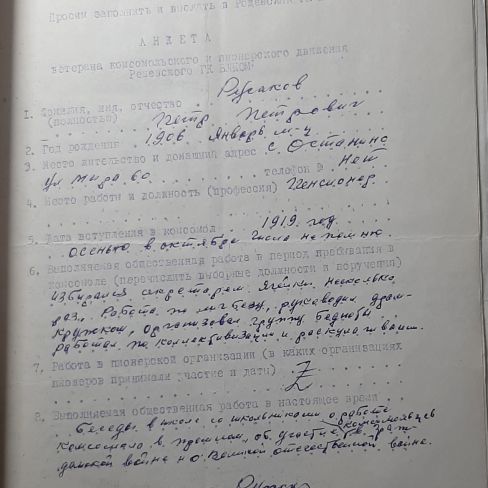 Просим заполнить и выслать в Режевский
АНКЕТА
ветерана комсомольского и пионерского движения
Режевского ГК ВЛКСМ
1. Фамилия, имя, отчество Русаков
(полностью) Петр Петрович
2. Год рождения 1906 январь м-ц
3. Место жительство и домашний адрес с Останино
ул мира 60 телефон Нет
4. Место работы и должность (профессия) Пенсионер
5. Дата вступления в комсомол 1919 год
осенью в октябре числа не помню
6. Выполняемая общественная работа в период пребывания в
комсомоле (перечислить выборные должности и поручения)
избирался секретарем ячейки несколько
раз. Работа по ликбезу, руководил драм-
кружком, организовал группу бедноты
работал по коллективизации и раскулачиван.
7. Работа в пионерской организации (в каких организациях
пионеров принимали участие и даты)
8. Выполняемая общественная работа в настоящее время
Беседы в школе со школьниками о работе
комсомола в прошлом, об участие комсомольцев в граж-
данской война и о Великой отечественной война.